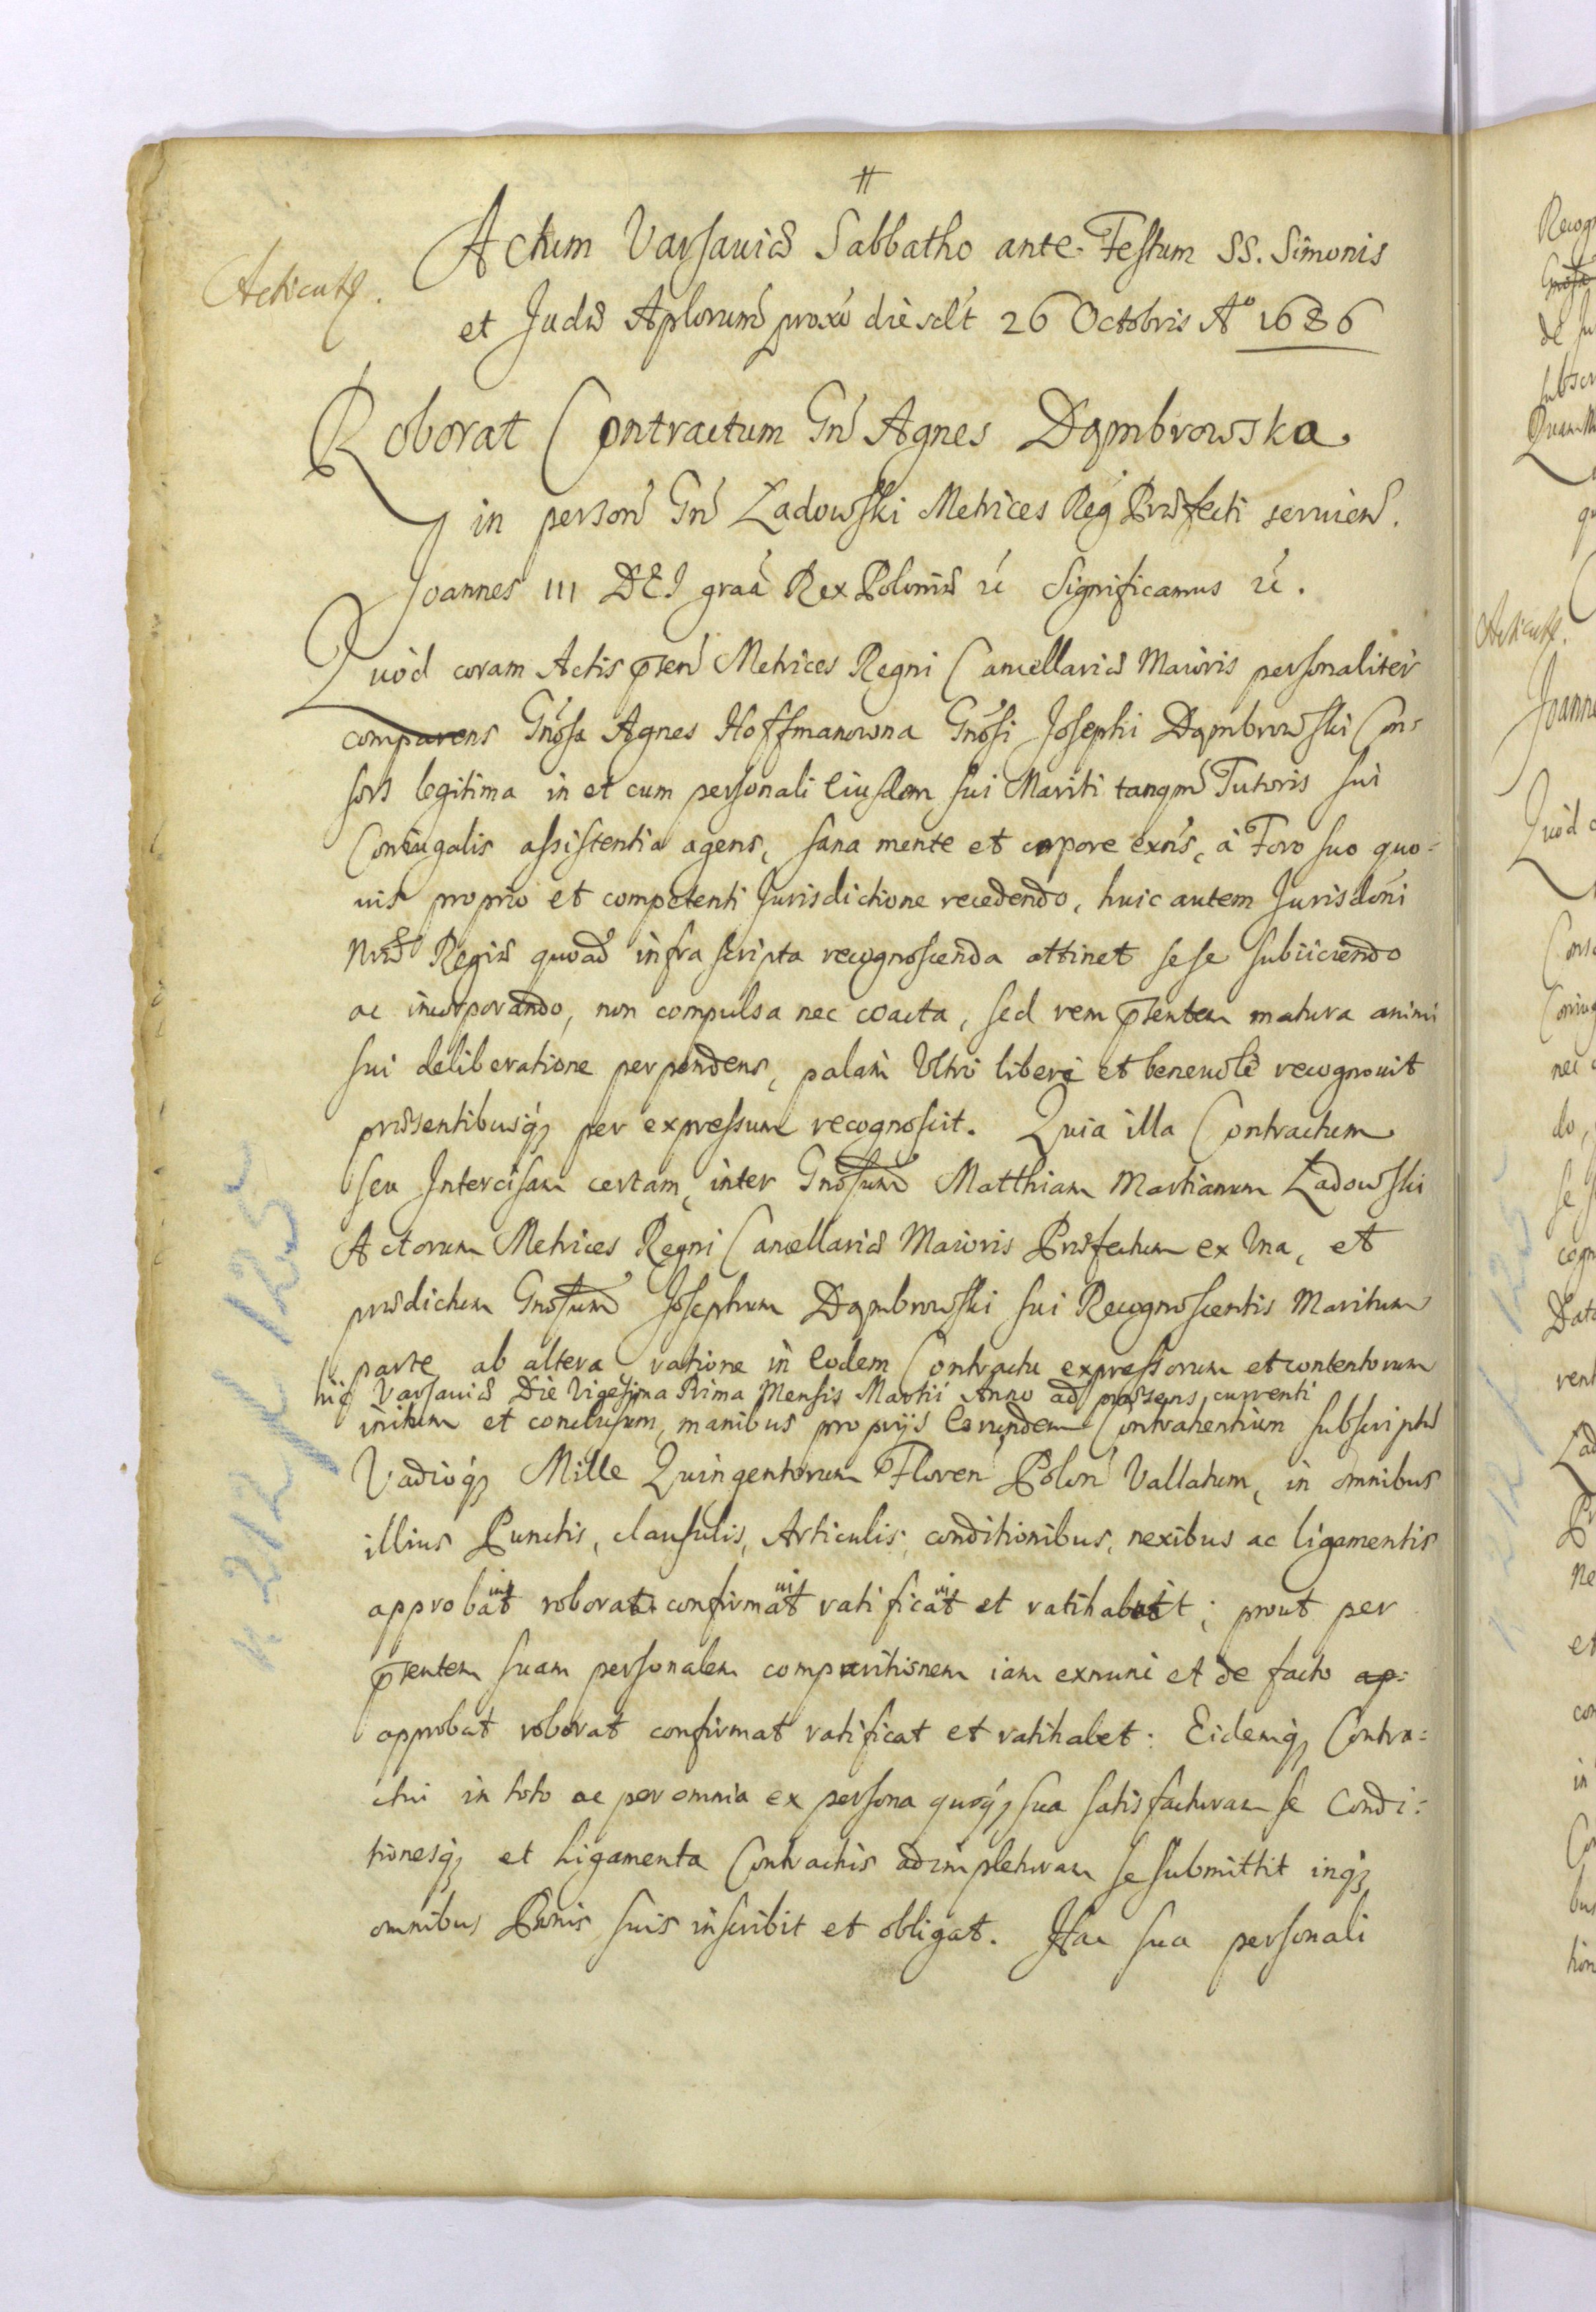 Acticat͠.
Actum Varsaviæ Sabbatho ante Festum SS. Simonis
et Judæ Aplorum̄ proxō die sclt 26 Octobris Aº 1686
Roborat Contractum Gn̄ Agnes Dąmbrowska
in person̄ Gn̄ Ładowski Metrices Reg Præfecti servien̄.
Joannes III DEI graâ Rex Poloniæ ꝛć Significamus ꝛć.
Quòd coram Actis p̄sen̄ Metrices Regni Cancellariæ Maioris personaliter
comparens Gnosa Agnes Hoffmanowna Gnosi Josephi Dąmbrowski Con-
sors legitima in et cum personali eiusdem sui Mariti tanqm̄ Tutoris sui
Coniugalis assistentia agens, sana mente et corpore exn̄s, à Foro suo quo=
vis proprio et competenti Jurisdictione recedendo, huic autem Jurisdōni
Nræ Regiæ quoad infra scripta recognoscenda attinet sese subiiciendo
ac incorporando, non compulsa nec coacta, sed rem p̄sentem matura animi
sui deliberatione perpendens, palàm Ultrò liberè et benevolè recognovit
præsentibusq́ꝫ per expressum recognoscit. Quia illa Contractum
seu Intercisam certam, inter Gnosum Matthiam Martianum Ładowski
Actorum Metrices Regni Cancellariæ Maioris Præfectum ex Una, et
prædictum Gnosum Josephum Dąmbrowski sui Recognoscentis Maritum
parte ab altera ratione in eodem Contractu expressorum et contentorum
hîc Varsaviæ Die Vigesima Prima Mensis Martii Anno ad præsens currenti
initum et conclusum, manibus proprijs eorundem Contrahentium subscriptū
Vadioq́ꝫ Mille Quingentorum Floren̄ Polon̄ Vallatum, in omnibus
illius Punctis, clausulis, Articulis, conditionibus, nexibus ac ligamentis
approbavit roborat confirmavit ratificavit et ratihabuit; prout per
p̄sentem suam personalem comparitionem iam exnunc et de facto ap=
approbat roborat confirmat ratificat et ratihabet: Eidemq́ꝫ Contra=
ctui in toto ac per omnia ex persona quoq́ꝫ sua satisfacturam se Condi=
tionesq́ꝫ et Ligamenta Contractus adimpleturam se submittit inq́ꝫ
omnibus Bonis suis inscribit et obligat. Hac sua personali